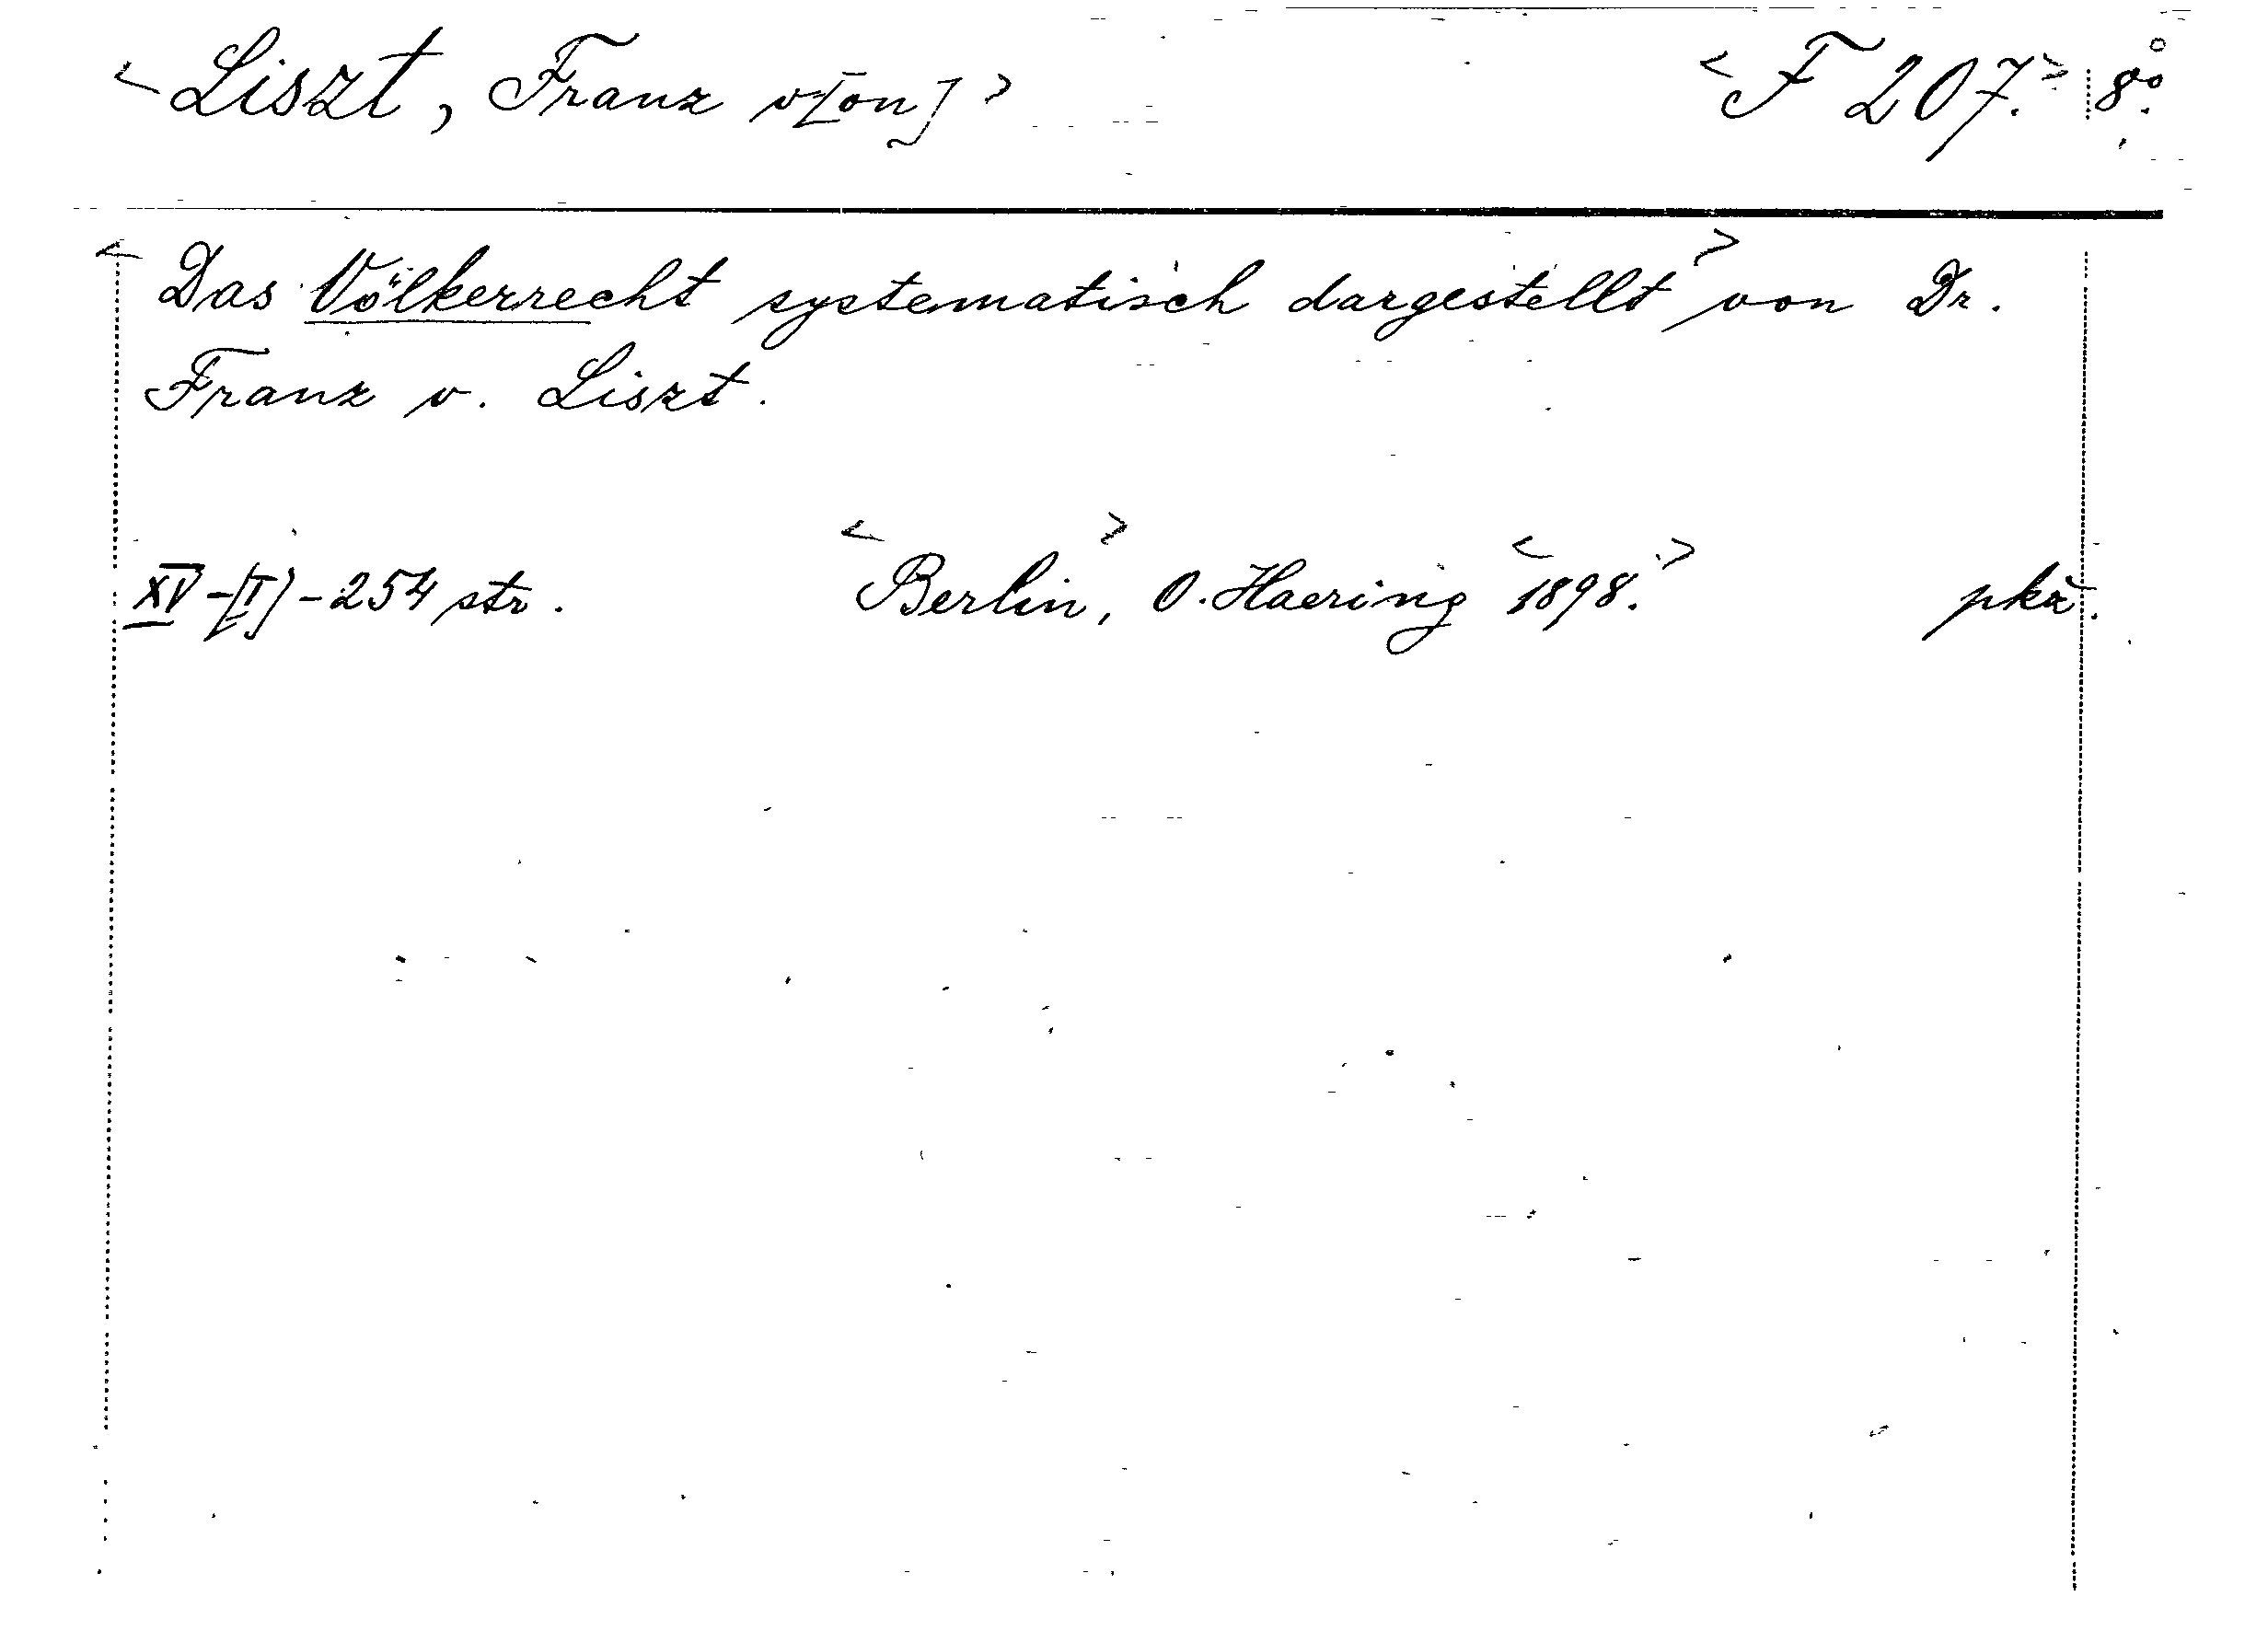 <Liszt, Franz v[on]> <F 207.> 8°.
<Das Völkerrecht systematisch dargestellt> von Dr.
Franz v. Liszt.
XV-[I]-254 str. <Berlin>, O. Haering <1898.> pkž.